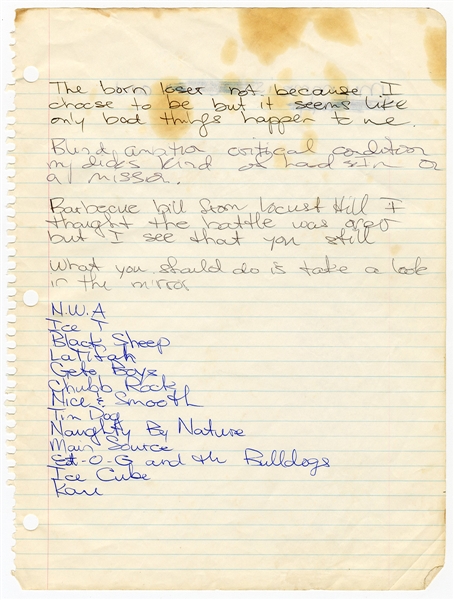 The born loser not because I
choose to be but it seems like
only bad things happen to me.
Blind, ambition critical condition
my dicks kind of hard I'm on
a mission.
Barbecue bill from Locust Hill I
thought the battle was over
but I see that you still
What you should do is take a look
in the mirror
N.W.A
Ice T
Black Sheep
Latifah
Geto Boys
Chubb Rock
Nice & Smooth
Tim Dog
Naughty By Nature
Main Source
Ed-O-G and th Bulldogs
Ice Cube